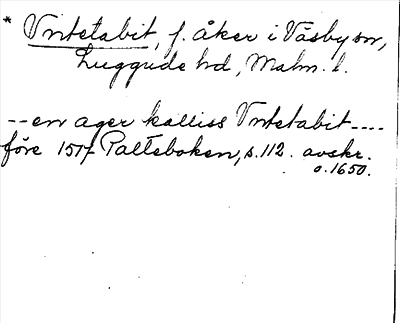 * Vntetabit, f. åker i Väsby sn,
Luggude hd, Malm. l.
-- en ager kalliss Vntetabit ----
före 1517 Palteboken, s. 112. avskr.
o. 1650.